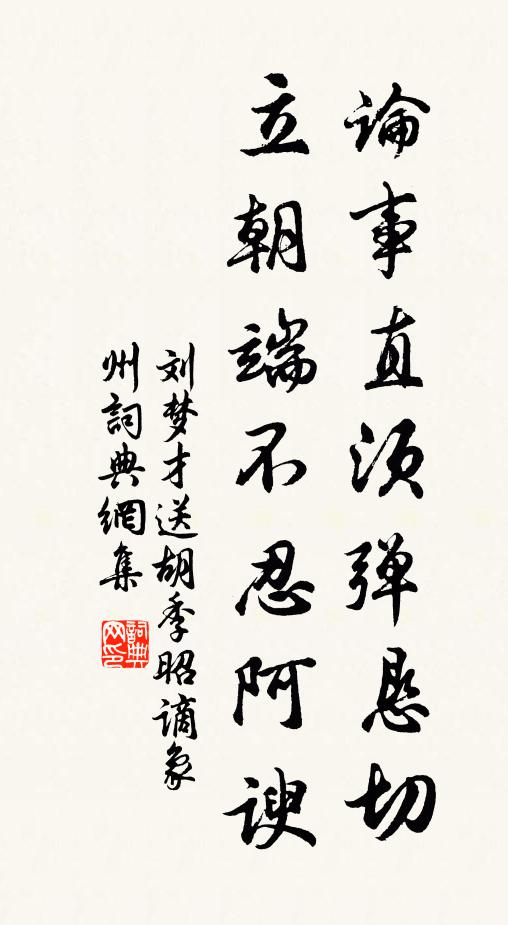 論事直须弹恳切
立朝端不忍阿諛
刘梦才送胡季昭谪象
州詞典網集
詞典网印